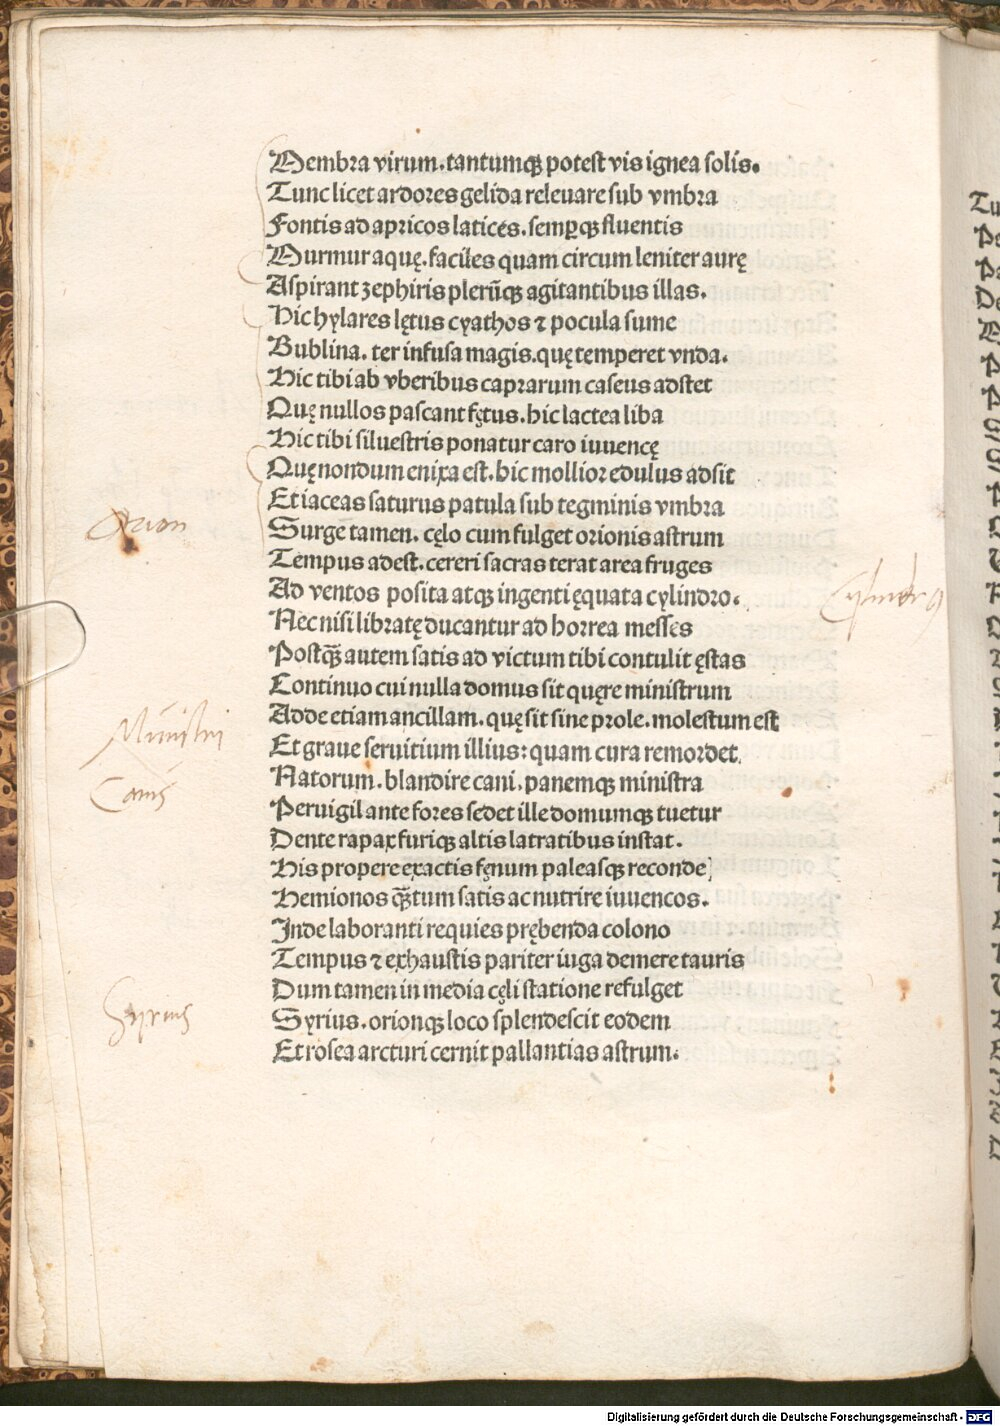 Membra virum. tantumqꝫ potest vis ignea solis.
Tunc licet ardores gelida releuare sub vmbra
Fontis ad apricos latices. semꝑqꝫ fluentis
Murmur aquę. faciles quam circum leniter aurę
Aspirant zephiris plerũqꝫ agitantibus illas.
Hic hylares lętus cyathos ⁊ pocula sume
Bublina. ter infusa magis. quę temperet vnda.
Hic tibi ab vberibus caprarum caseus adstet
Quę nullos pascant fętus. hic lactea liba
Hic tibi siluestris ponatur caro iuuencę
Quę nondum enixa est. hic mollior edulus adsit
Et iaceas saturus patula sub tegminis vmbra
Orion
Surge tamen. cęlo cum fulget orionis astrum
Tempus adest. cereri sacras terat area fruges
Ad ventos posita atqꝫ ingenti ęquata cylindro.
Cylindrꝰ
Nec nisi libratę ducantur ad horrea messes
Postq̃ autem satis ad victum tibi contulit ęstas
Continuo cui nulla domus sit quęre ministrum
Ministri
Adde etiam ancillam. quę sit sine prole. molestum est
Et graue seruitium illius: quam cura remordet.
Canis
Natorum. blandire cani. panemqꝫ ministra
Peruigil ante fores sedet ille domumqꝫ tuetur
Dente rapax furiqꝫ altis latratibus instat.
His propere exactis fęnum paleasqꝫ reconde
Hemionos q̃tum satis ac nutrire iuuencos.
Inde laboranti requies prębenda colono
Tempus ⁊ exhaustis pariter iuga demere tauris
Dum tamen in media cęli statione refulget
Syrius
Syrius. orionqꝫ loco splendescit eodem
Et rosea arcturi cernit pallantias astrum.
Digitalisierung gefördert durch die Deutsche Forschungsgemeinschaft - DFG